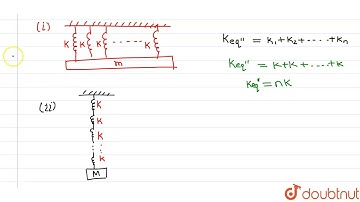 (i)
K K K ...... K
m
Keq" = K₁+K₂+.....+Kn
Keq" = K+K+.....+K
Keq" = nK
(ii)
K
K
K
K
M
doubtnut